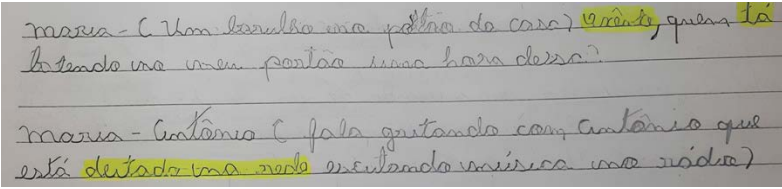 Maria - ( Um barulho no portão da casa) Oxente, quem tá
batendo no meu portão uma hora dessa?
Maria - Antônio ( fala gritando com Antônio que
está deitado na rede escutando música no rádio)